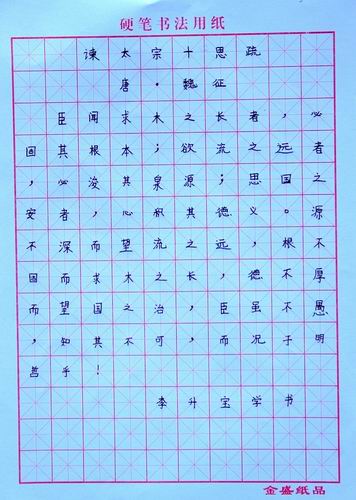 硬笔书法用纸
谏太宗十思疏
唐·魏征
臣闻求木之长者，必
固其根本；欲流之远者
，必浚其泉源；思国之
安者，必积其德义。源
不深而望流之远，根不
固而求木之长，德不厚
而望国之治，臣虽不愚
，知其不可，而况于明
哲乎！
李升宝学书
金盛纸品